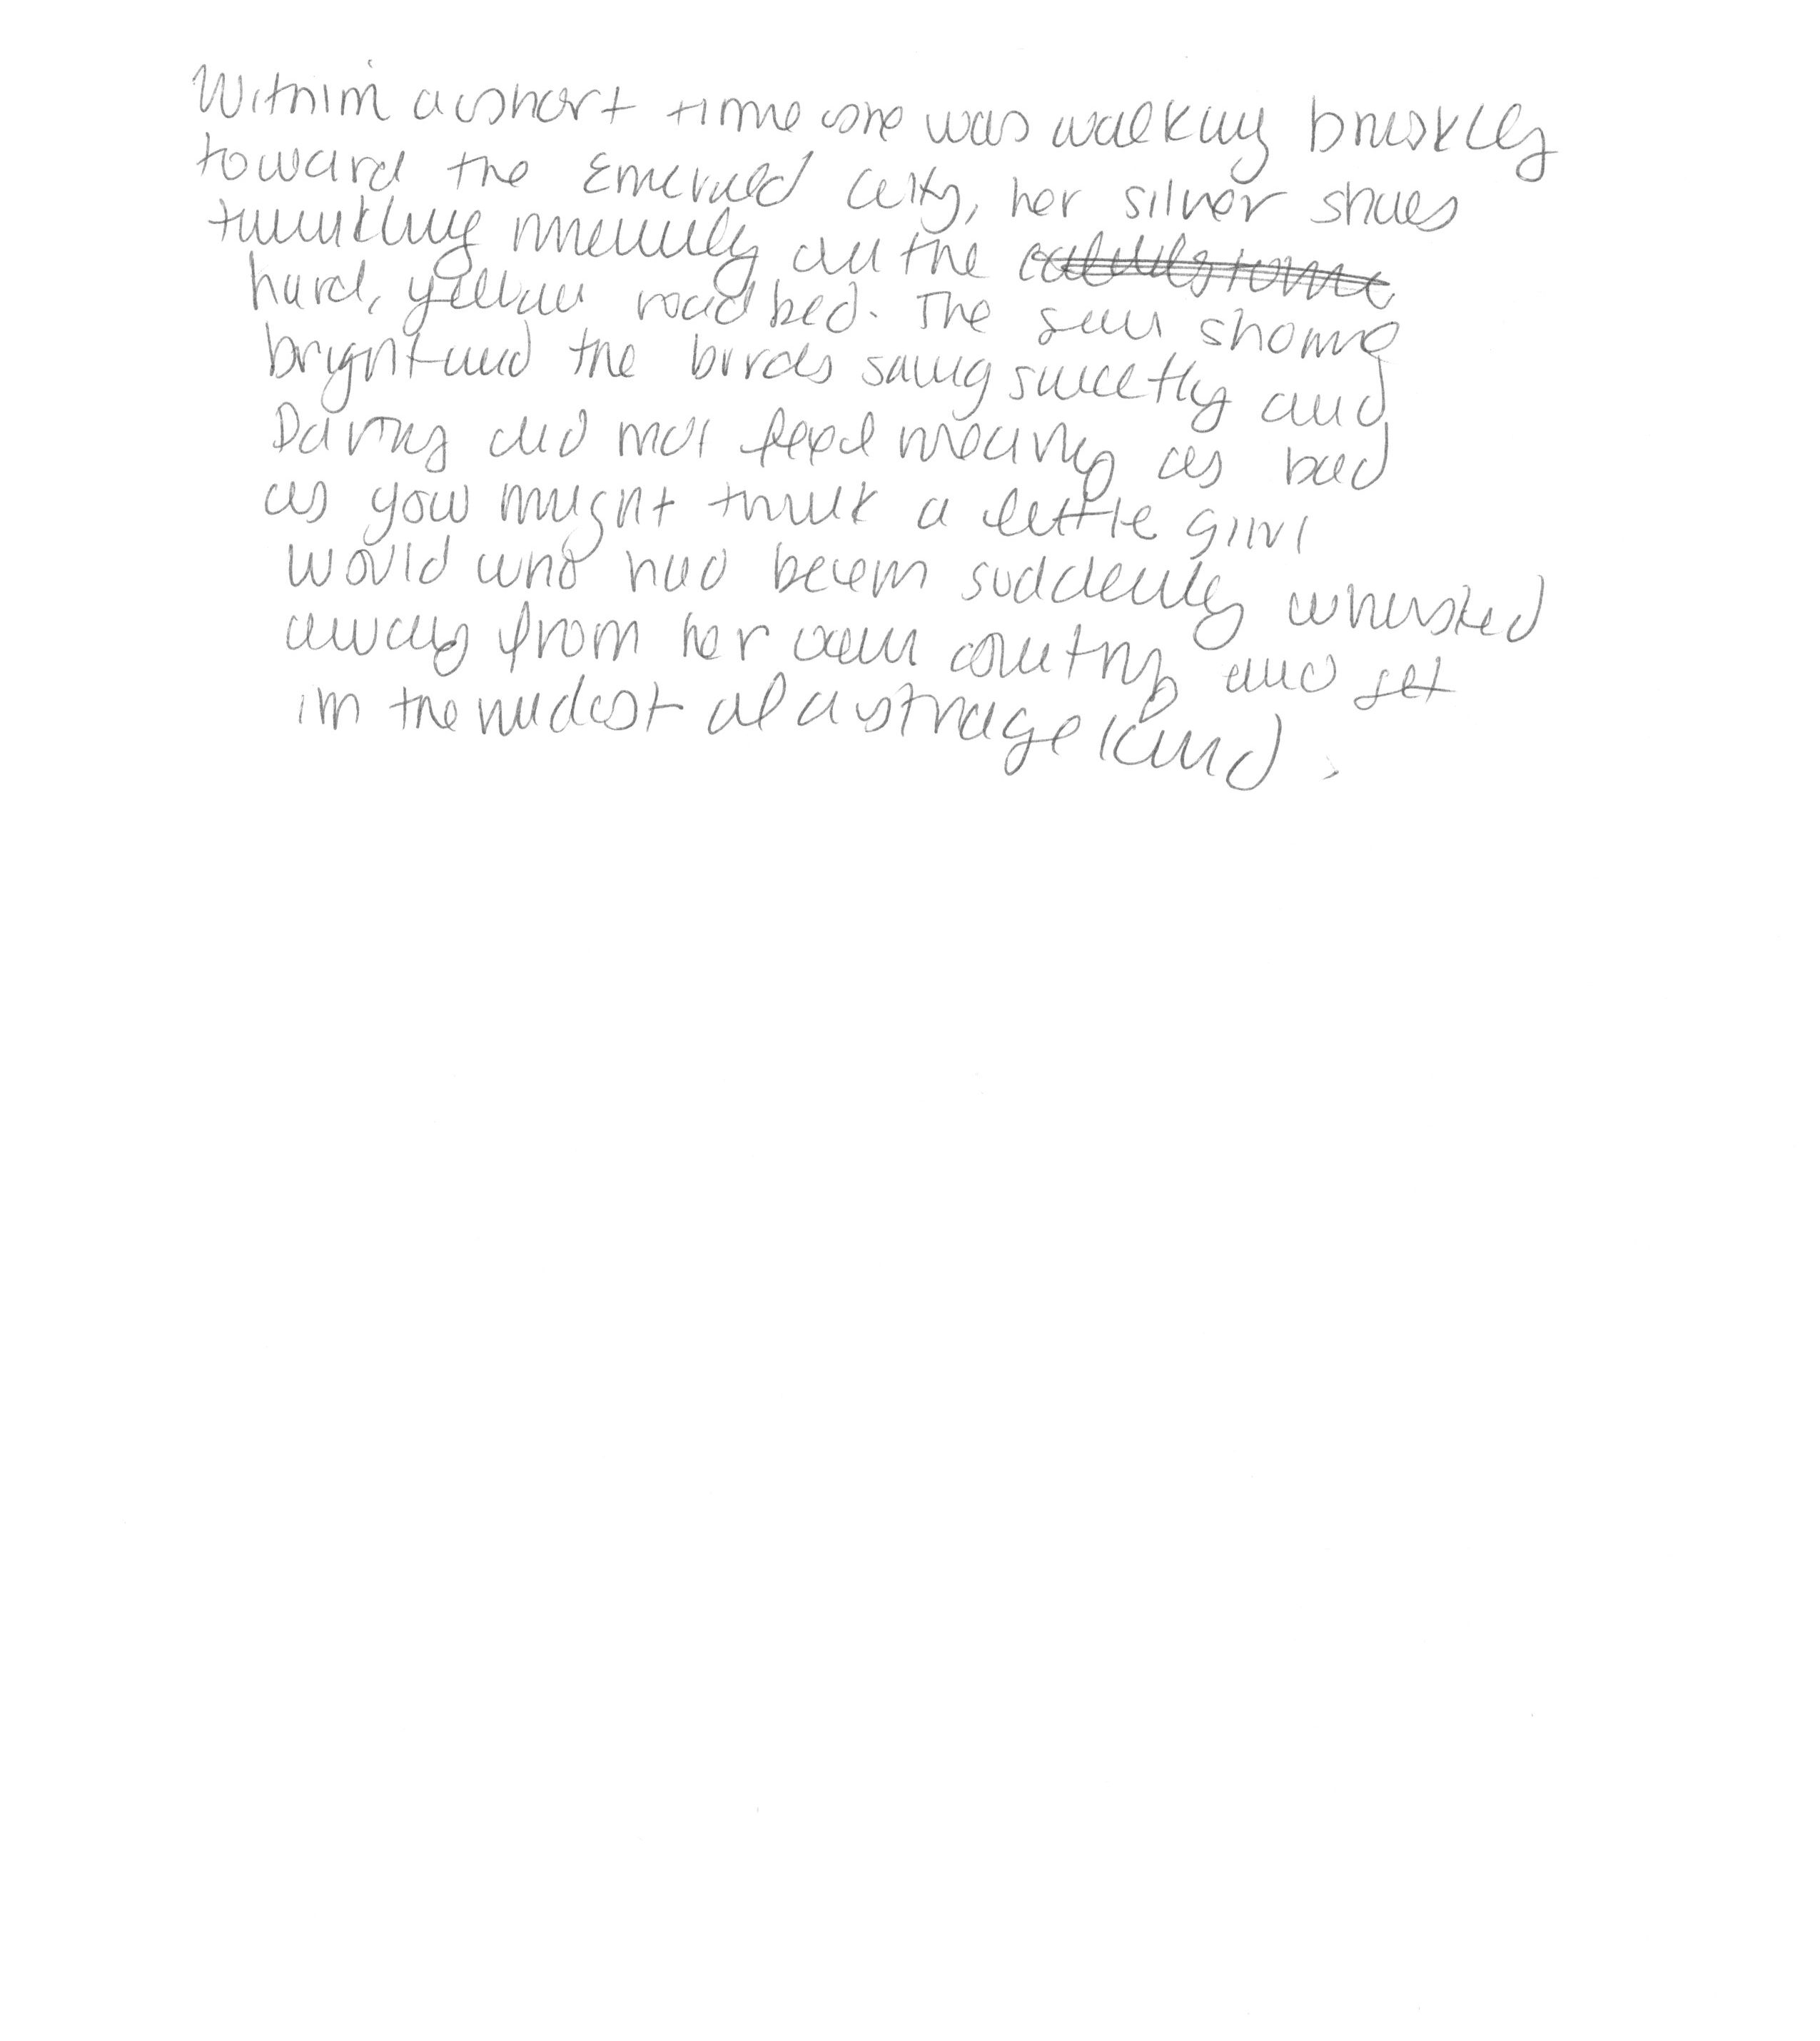 Within a short time she was walking briskly
toward the Emerald City, her silver shoes
twinkling merrily on the
hard, yellow road bed. The sun shone
bright and the birds sang sweetly and
Dorothy did not feel nearly as bad
as you might think a little girl
would who had been suddenly whisked
away from her own country and set
in the midst of a strange land.